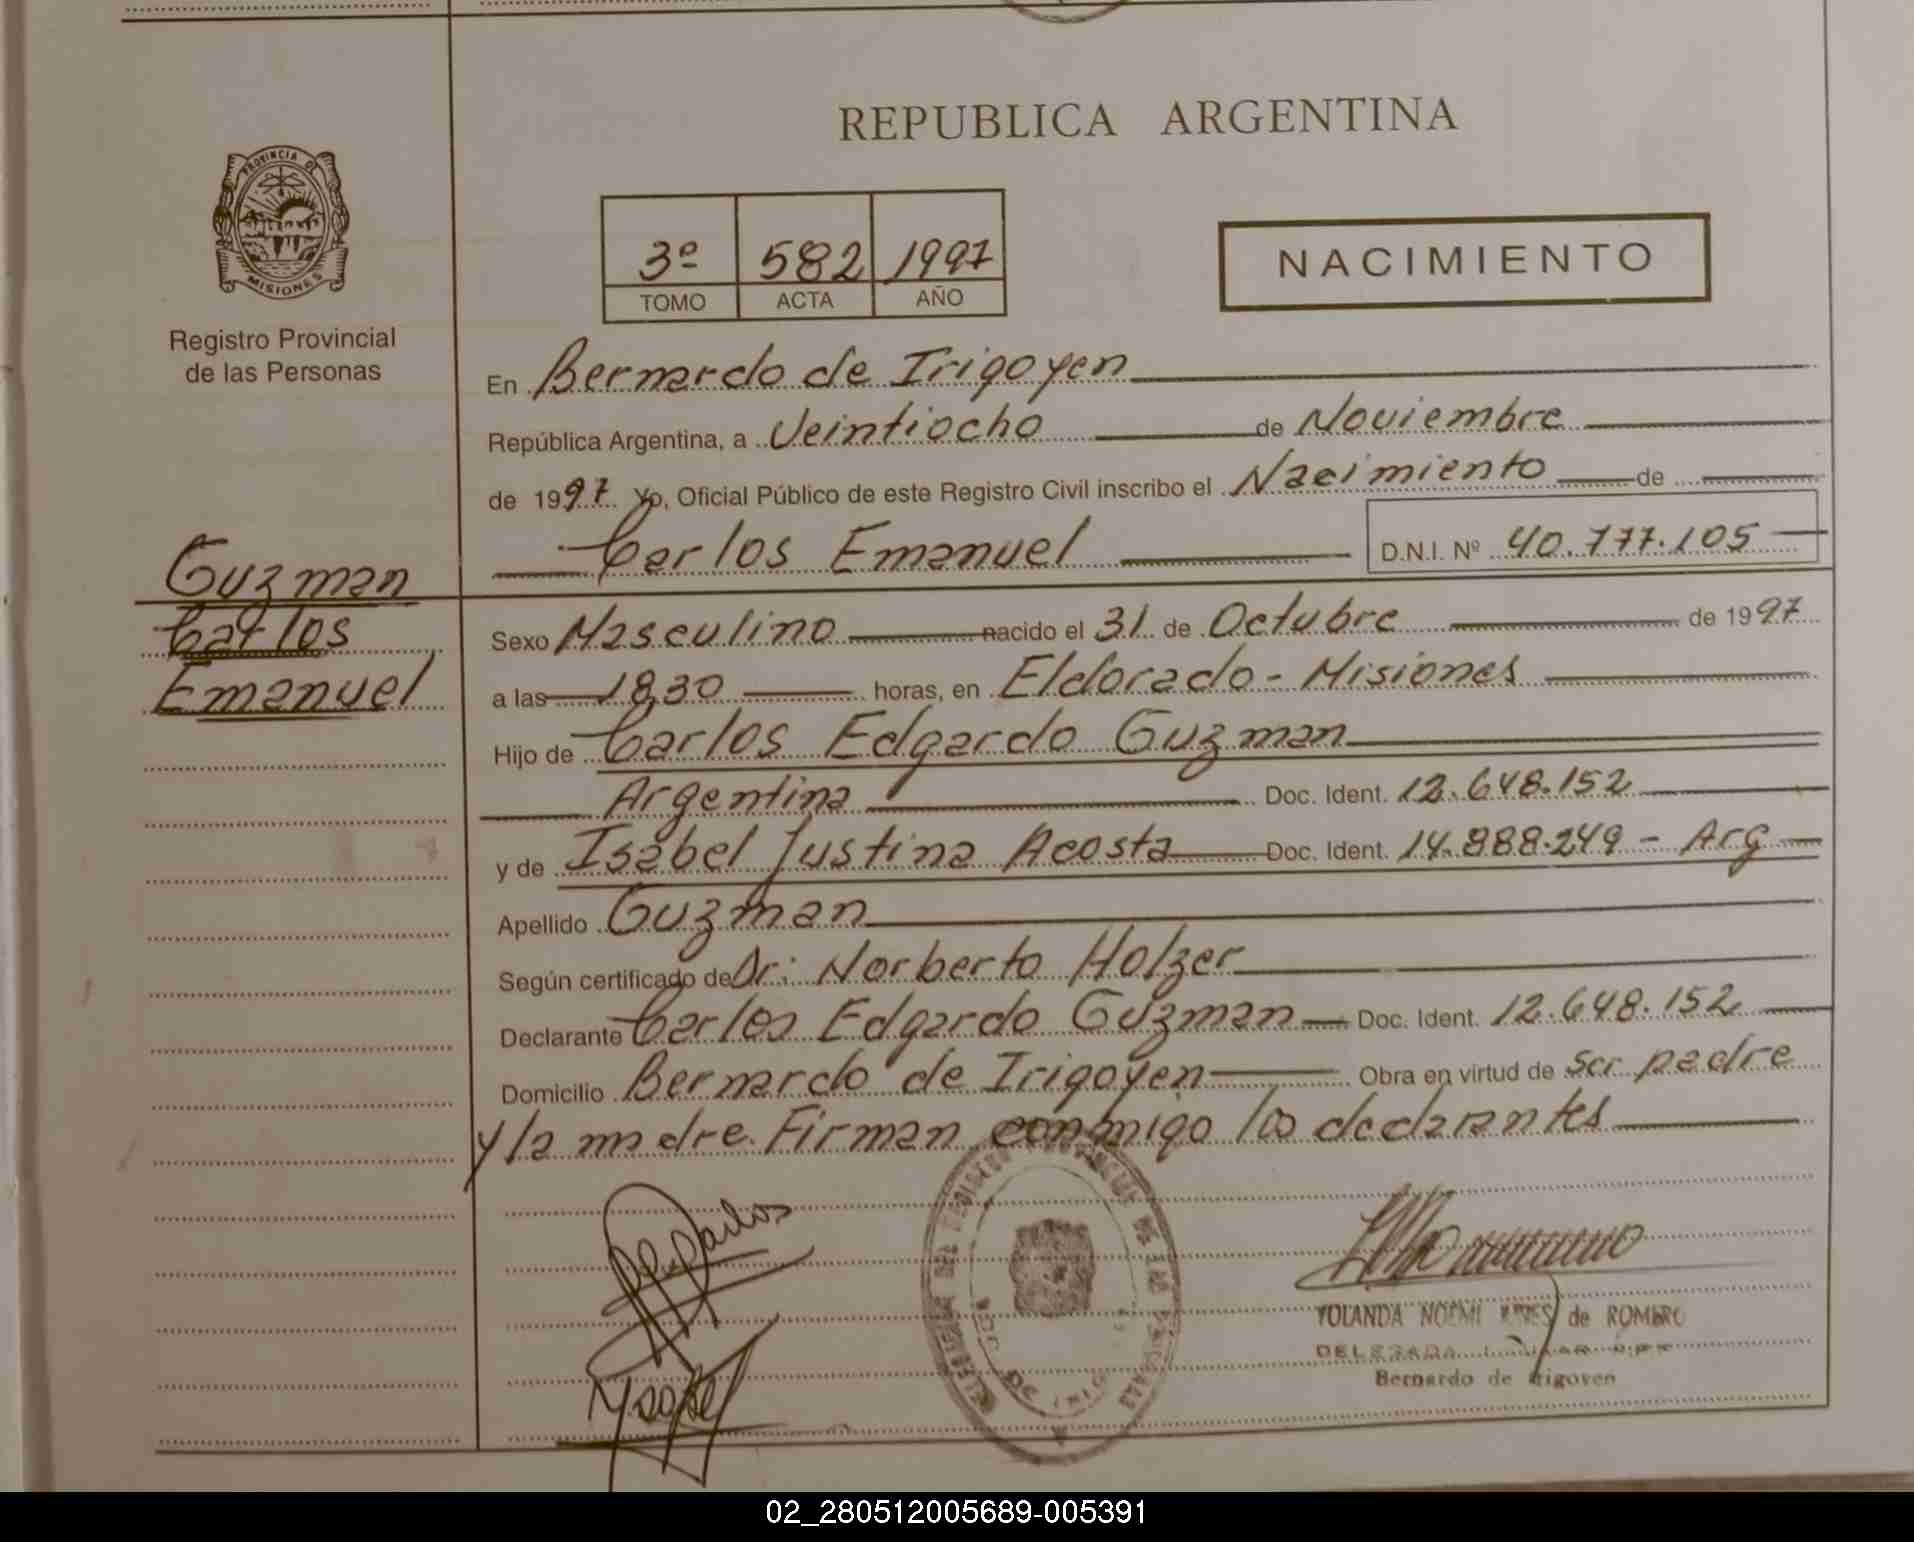 REPUBLICA ARGENTINA
PROVINCIA DE
MISIONES
Registro Provincial
de las Personas
3º 582 1997
TOMO ACTA AÑO
NACIMIENTO
En Bernardo de Irigoyen
República Argentina, a Veintiocho de Noviembre
de 1997 Yo, Oficial Público de este Registro Civil inscribo el Nacimiento de
Carlos Emanuel D.N.I. Nº 40.777.105
Guzman
Carlos
Emanuel
Sexo Masculino nacido el 31 de Octubre de 1997
a las 18,30 horas, en Eldorado - Misiones
Hijo de Carlos Edgardo Guzman
Argentina Doc. Ident. 12.648.152
y de Isabel Justina Acosta Doc. Ident. 14.888.249 - Arg
Apellido Guzman
Según certificado de Dr: Norberto Holzer
Declarante Carlos Edgardo Guzman Doc. Ident. 12.648.152
Domicilio Bernardo de Irigoyen Obra en virtud de ser padre
y la madre. Firman conmigo los declarantes
YOLANDA NOEMI de ROMERO
DELEGADA
Bernardo de Irigoyen
02_280512005689-005391